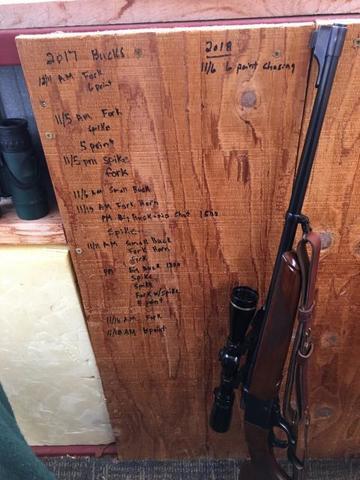 2017 Bucks
AM Fork
6 point
11/5 AM Fork
Spike
5 point
11/5 pm Spike
fork
AM Small Buck
AM Fork Horn
PM Big Buck
Spike
AM Small Buck
Fork Horn
Fork
PM Buck
Spike
Spike
Fork w/spike
point
11/16 AM Fork
11/18 AM 6 point
2018
11/6 6 point chasing